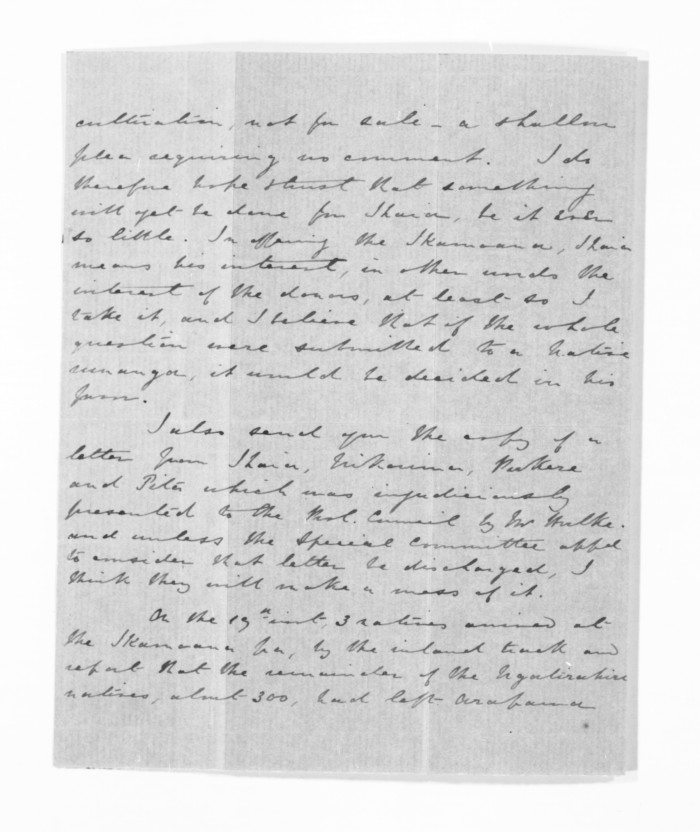 cultivation, not for sale - a shallow
plea requiring no comment. I do
therefore hope & trust that something
will yet be done for Ihaia, be it ever
so little. In offering the Ikamoana, Ihaia
means his interest, in other words the
interest of the donors, at least so I
take it, and I believe that if the whole
question were submitted to a Native
runanga, it would be decided in his
favor.
I also send you the copy of a
letter from Ihaia, Nikorima,
and Pita which was injudiciously
presented to the Prol. Council by Mr Hulke.
and unless the Special Committee appd
to consider that letter be discharged, I
think they will make a mess of it.
On the 19th inst, 3 natives arrived at
the Ikamoana pa, by the inland track and
report that the remainder of the
natives, about 300, had left Arapawa